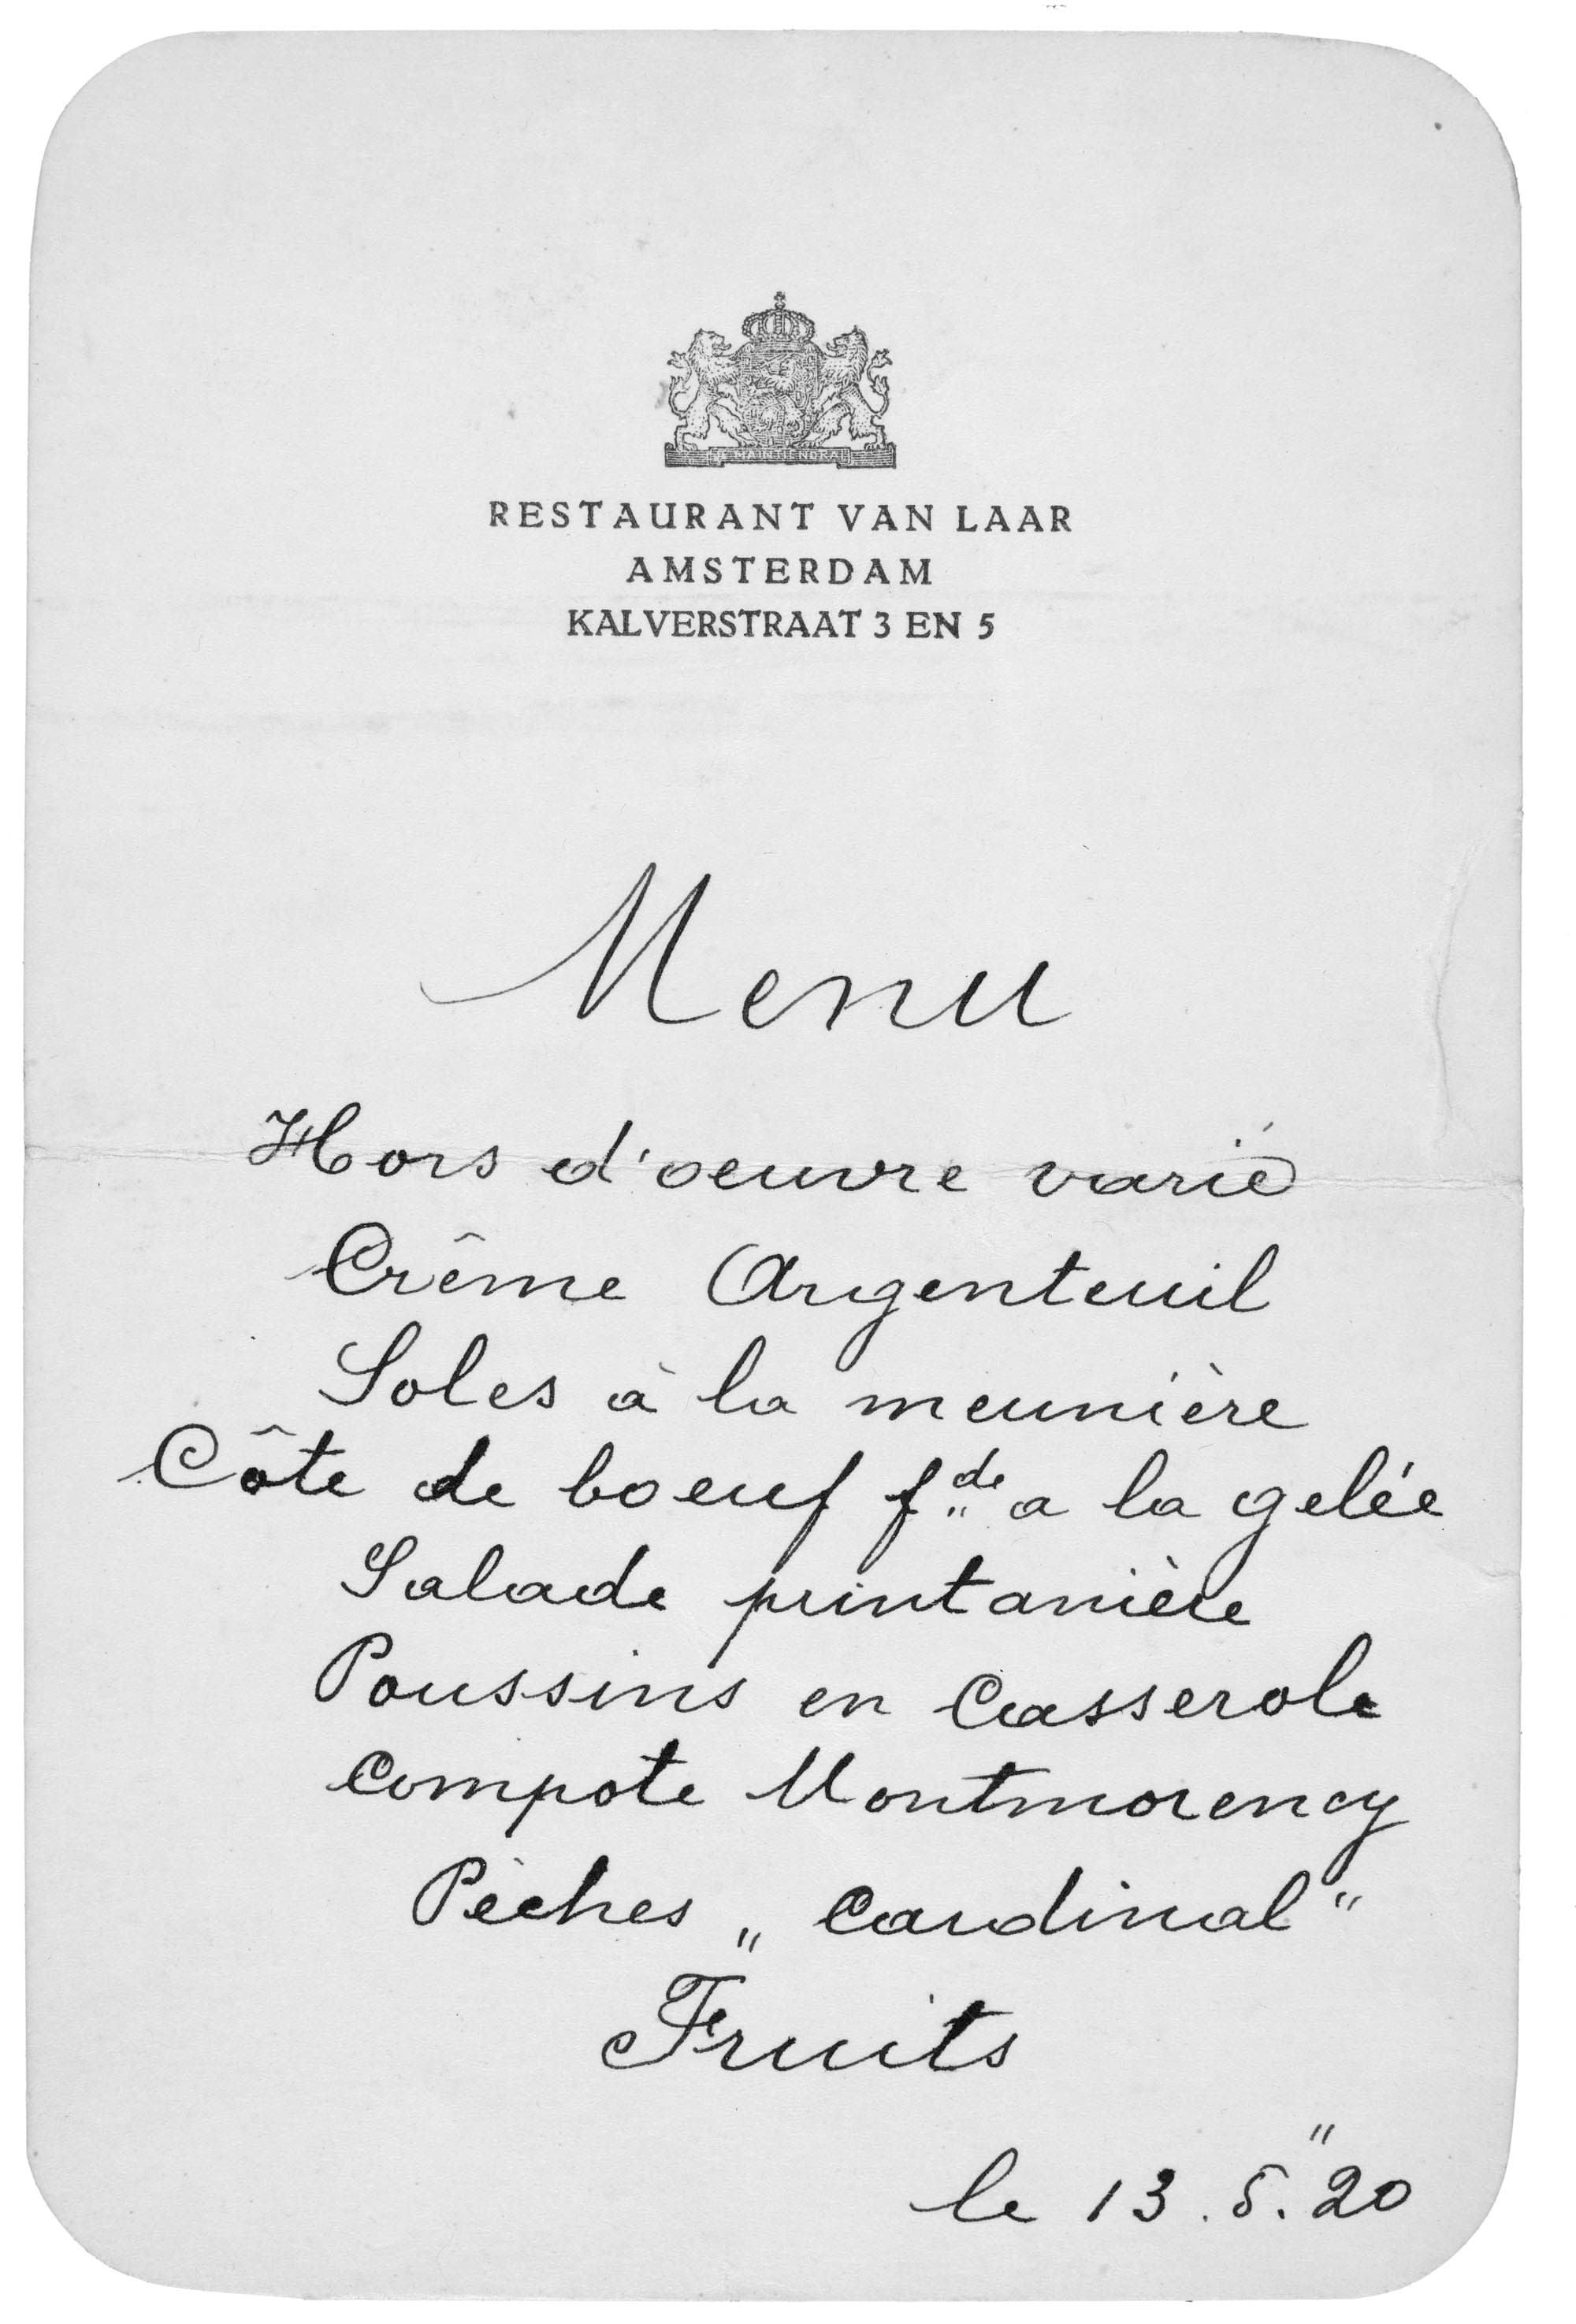 JE MAINTIENDRAI
RESTAURANT VAN LAAR
AMSTERDAM
KALVERSTRAAT 3 EN 5
Menu
Hors d'oeuvre varié
Crême Argenteuil
Soles à la meunière
Côte de boeuf fde a la gelée
Salade printanière
Poussins en Casserole
Compote Montmorency
Pèches „Cardinal"
Fruits
le 13.5."20